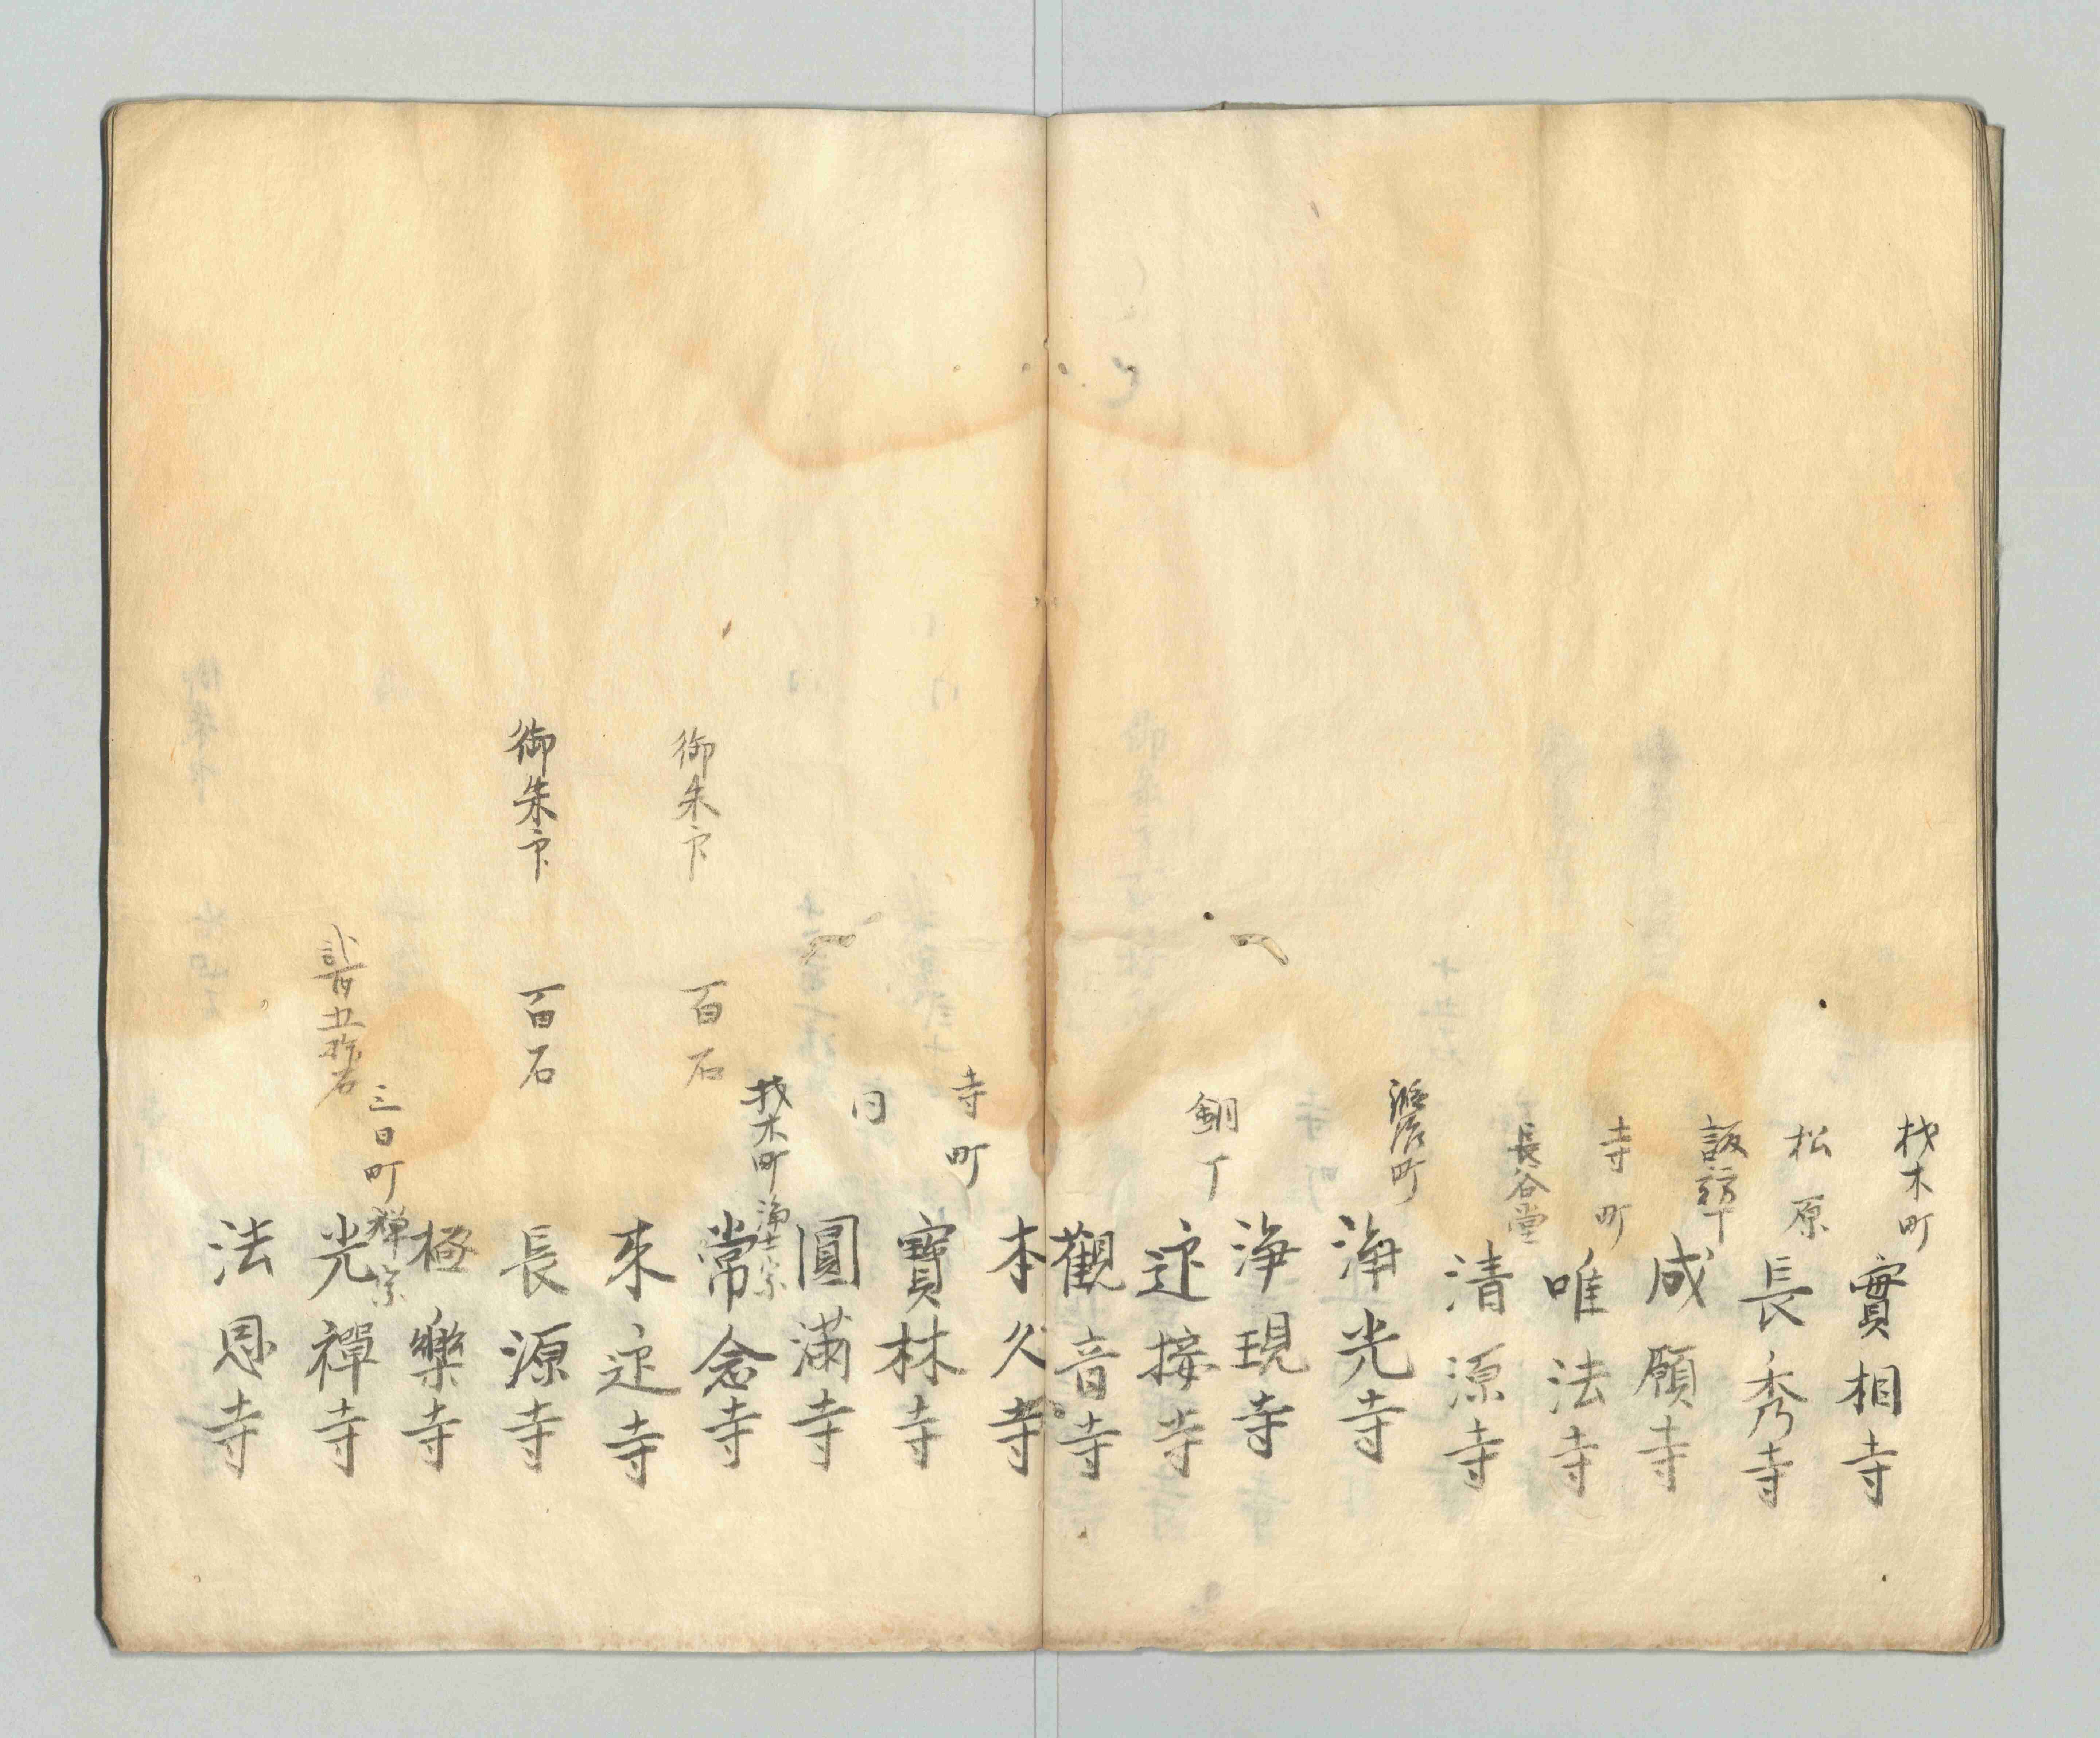 材木町
實相寺
松原
長秀寺
諏訪丁
咸願寺
寺町
唯法寺
長谷堂
清源寺
町
海光寺
浄現寺
銅丁
迎接寺
觀音寺
本久寺
寺町
寶林寺
同
圓滿寺
材木町
浄土宗
常念寺
御朱印　百石
来迎寺
御朱印　百石
長源寺
極樂寺
三日町
禅宗
光禪寺
貳百五拾石
法恩寺